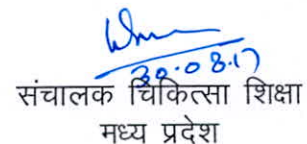 30.08.17
संचालक चिकित्सा शिक्षा
मध्य प्रदेश